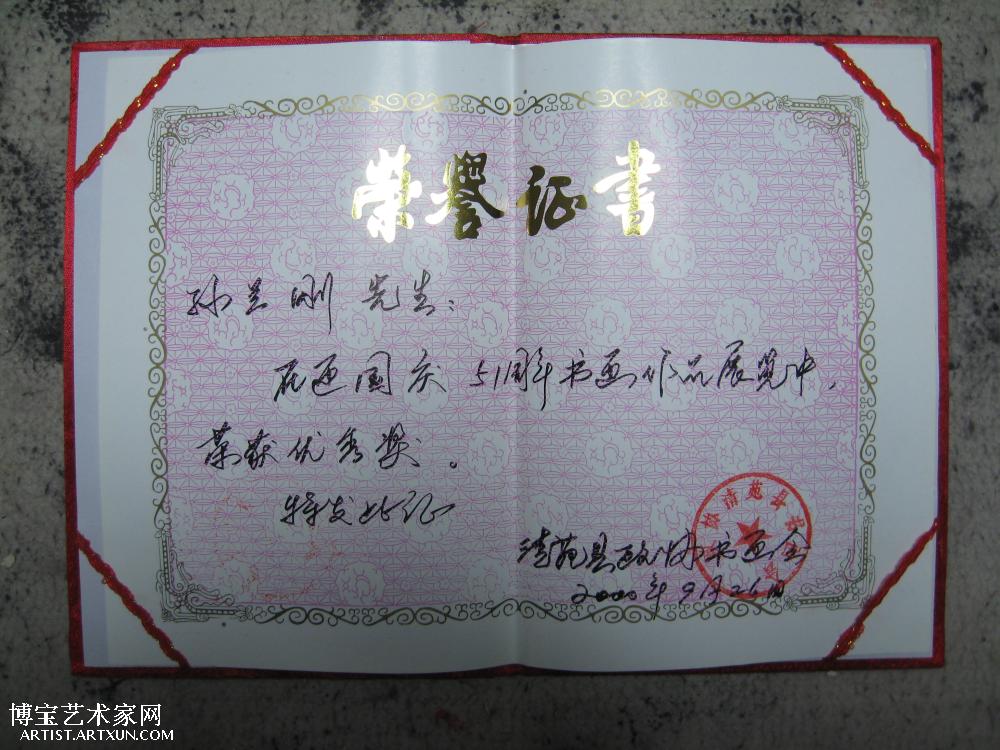 荣誉证书
孙兰刚 先生：
在迎国庆51周年书画作品展览中，
荣获优秀奖。
特发此证
清苑县政协书画会
2000年9月26日
清苑县
博宝艺术家网
ARTIST.ARTXUN.COM